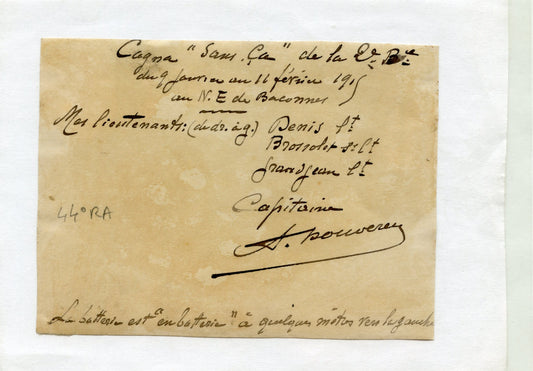 Cagna "Sans Ça" de la 2e Bie
du 9 Janvier au 11 février 1915
au N.E de Baconnes
Mes lieutenants: (de dr. à g.) Denis Lt
Brossolet s.Lt
Grandjean Lt
Capitaine
44° RA
La batterie est "en batterie" à quelques mètres vers la gauche